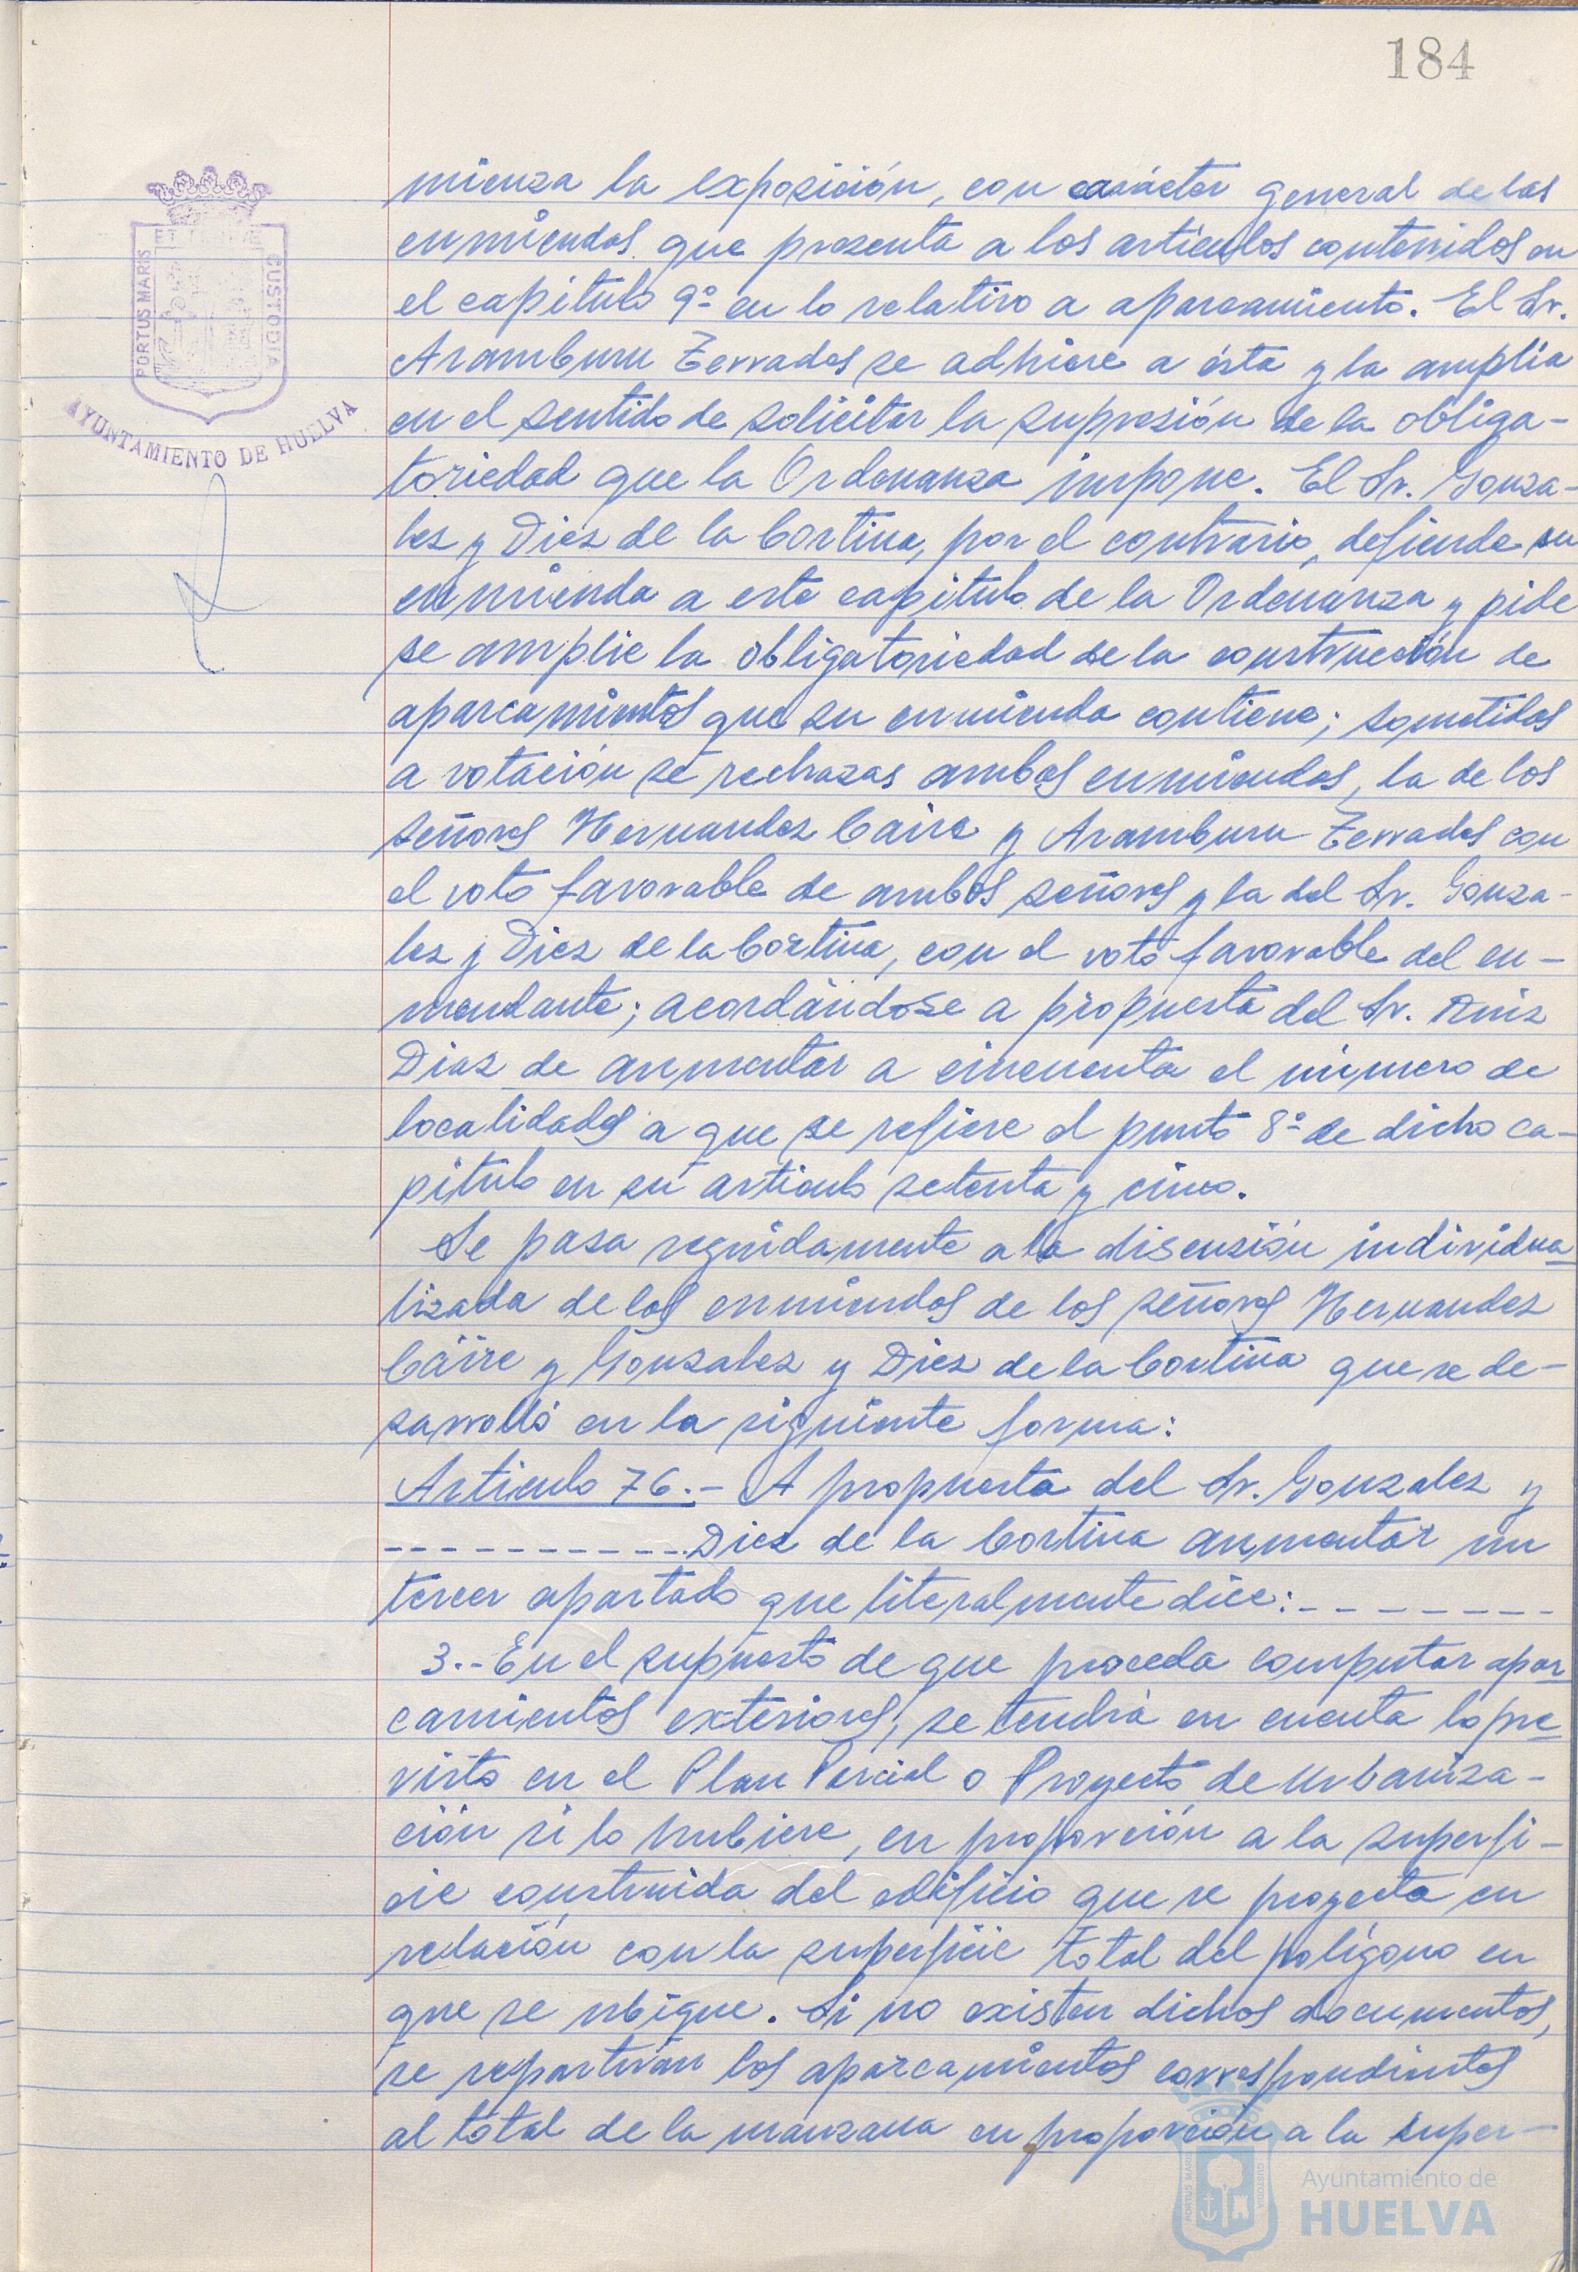 184
PORTUS MARIS
CUSTODIA
AYUNTAMIENTO DE HUELVA
mienza la exposición, con carácter general de las
enmiendas que presenta a los artículos contenidos en
el capítulo 9º en lo relativo a aparcamiento. El Sr.
Aramburu Terrades se adhiere a ésta y la amplía
en el sentido de solicitar la supresión de la obliga-
toriedad que la Ordenanza impone. El Sr. Gonza-
les y Diez de la Cortina, por el contrario, defiende su
enmienda a este capitulo de la Ordenanza y pide
se amplie la obligatoriedad de la construcción de
aparcamientos que su enmienda contiene; sometidas
a votación se rechazas ambas enmiendas, la de los
señores Hernandez Caire y Aramburu Terrades con
el voto favorable de ambos señores y la del Sr. Gonza-
les y Diez de la Cortina, con el voto favorable del en-
mendante; acordándose a propuesta del Sr. Ruiz
Diaz de aumentar a cincuenta el número de
localidades a que se refiere el punto 8º de dicho ca-
pitulo en su articulo setenta y cinco.
Se pasa seguidamente a la discusión individua-
lizada de las enmiendas de los señores Hernandez
Caire y Gonzalez y Diez de la Cortina que se de-
sarrolló en la siguiente forma:
Articulo 76.- A propuesta del Sr. Gonzalez y
----------- Diez de la Cortina aumentar un
tercer apartado que literalmente dice:- - - - - - -
3.- En el supuesto de que proceda computar apar-
camientos exteriores, se tendrá en cuenta lo pre-
visto en el Plan Parcial o Proyecto de Urbaniza-
ción si lo hubiere, en proporción a la superfi-
cie construida del edificio que se proyecta en
relación con la superficie total del polígono en
que se ubique. Si no existen dichos documentos,
se repartirán los aparcamientos correspondientes
al total de la manzana en proporción a la super-
Ayuntamiento de
HUELVA